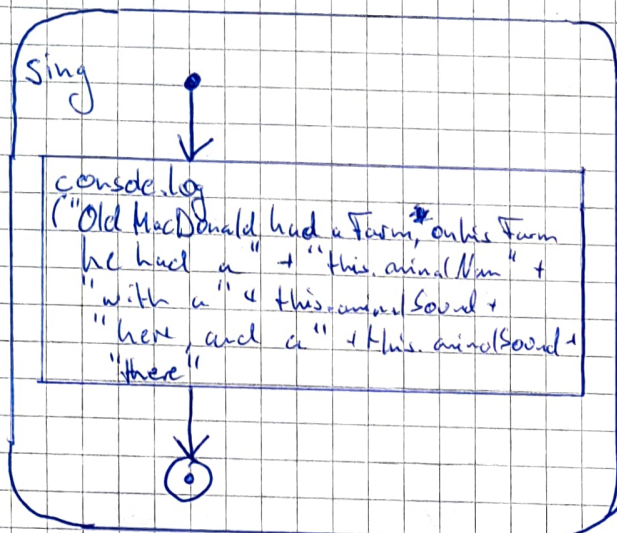 sing
console.log
("Old MacDonald had a Farm, on his Farm
he had a" + "this.animalNam" +
"with a" + this.animalSound +
"here, and a" + this.animalSound +
"there"